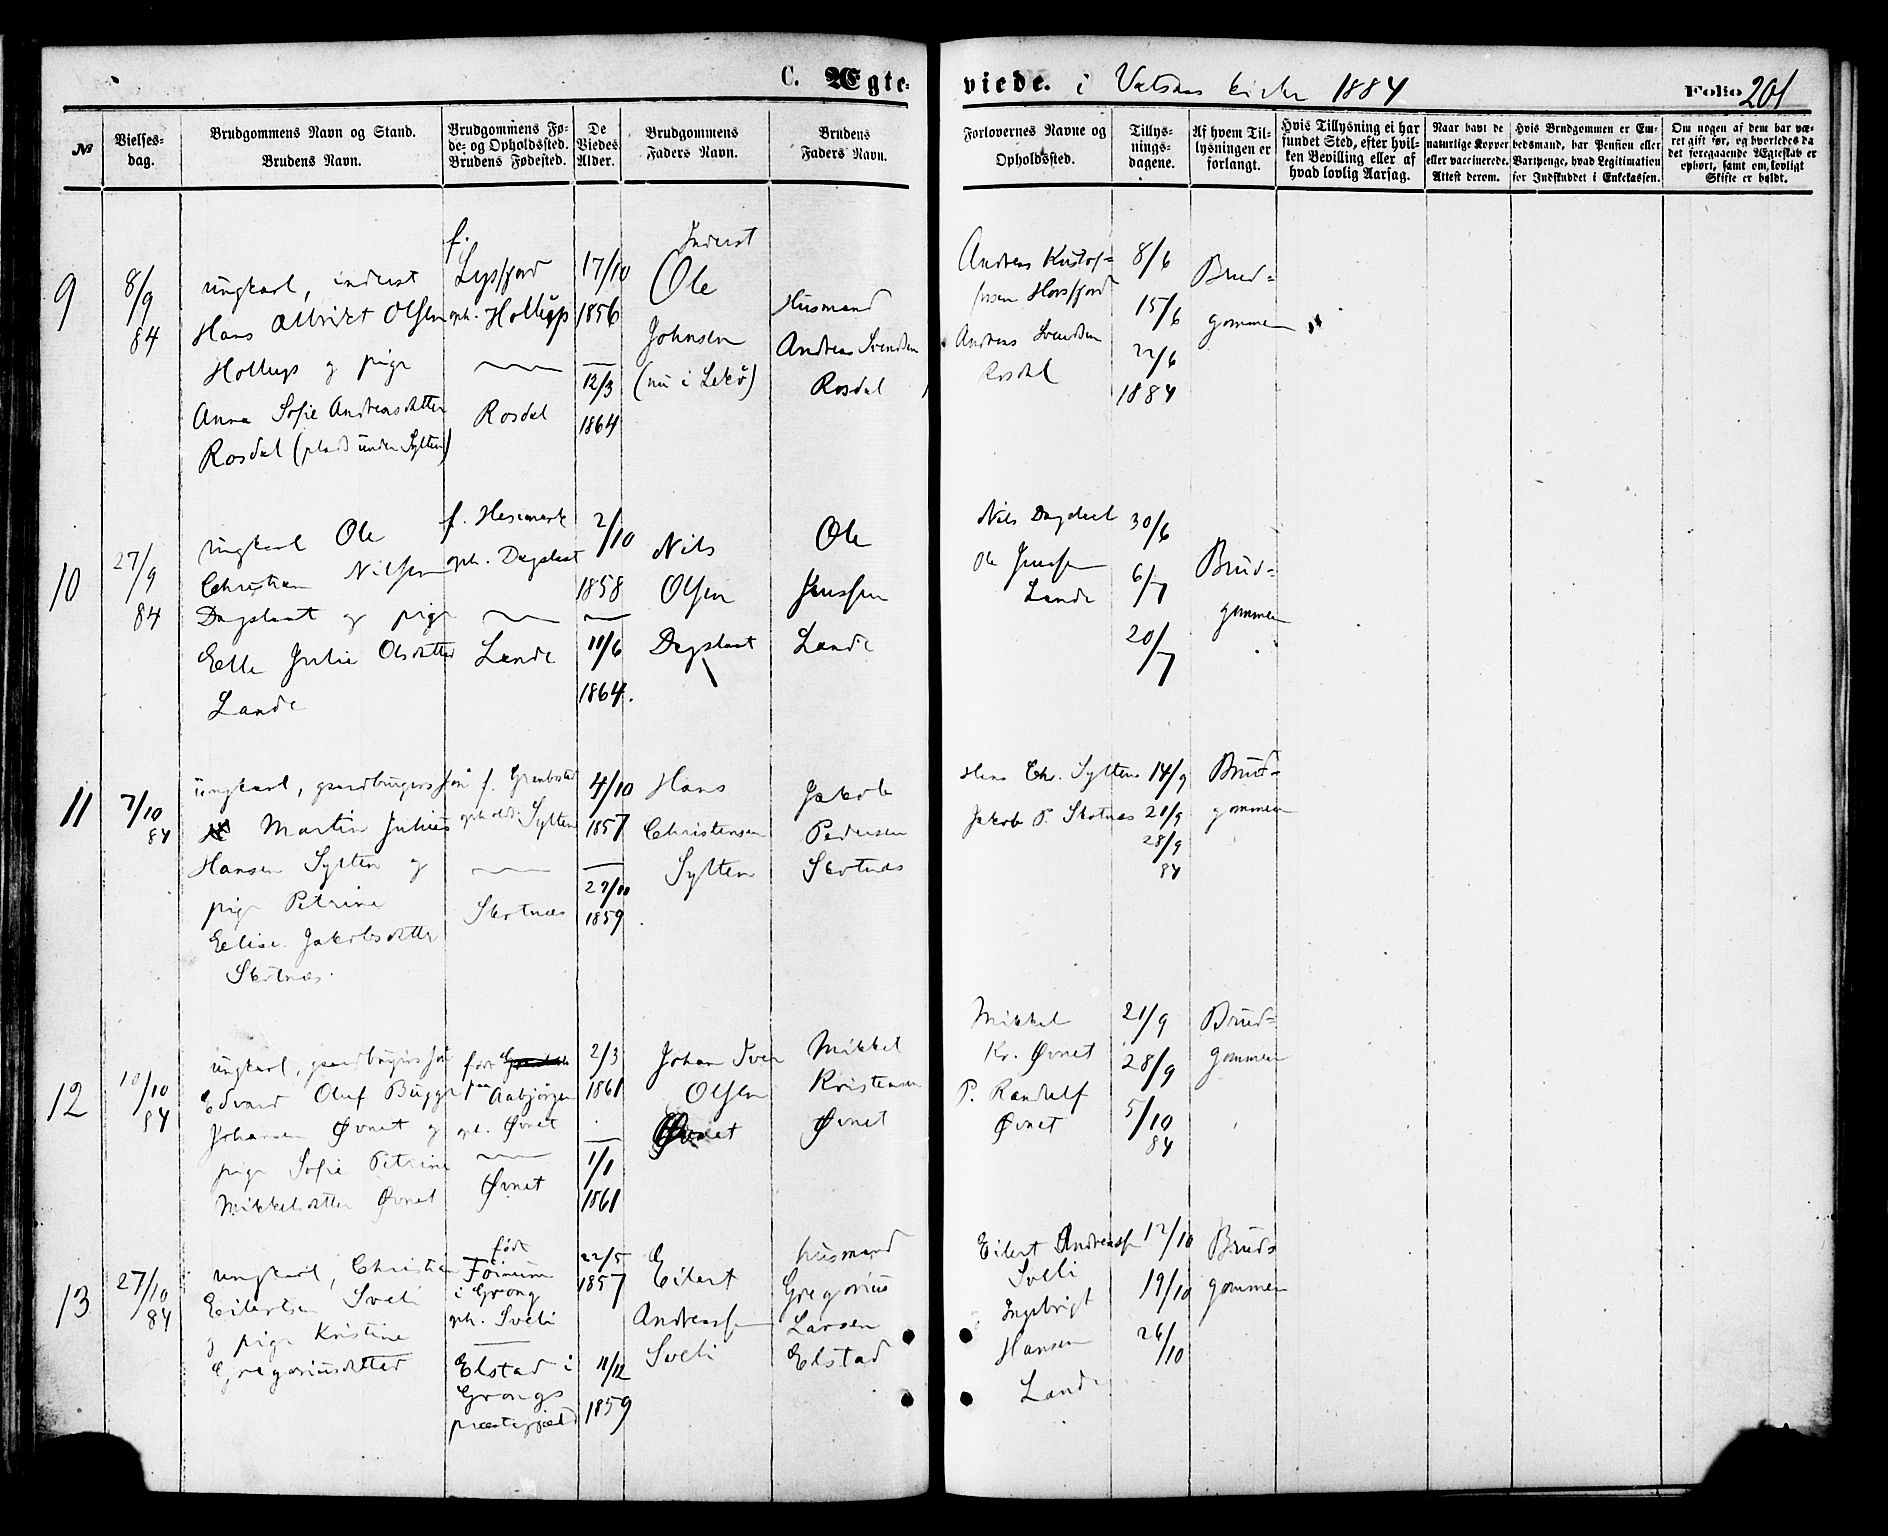 C. Ægte-
viede. i 1884
Folio 201
№
Vielses-
dag.
Brudgommens Navn og Stand.
Brudens Navn.
Brudgommens Fø-
de- og Opholdssted.
Brudens Fødested.
De
Viedes
Alder.
Brudgommens
Faders Navn.
Brudens
Faders Navn.
Forlovernes Navne og
Opholdssted.
Tillys-
nings-
dagene.
Af hvem Til-
lysningen er
forlangt.
Hvis Tillysning ei har
fundet Sted, efter hvil-
ken Bevilling eller af
hvad lovlig Aarsag.
Naar havt de
naturlige Kopper
eller vaccinerede.
Attest derom.
Hvis Brudgommen er Em-
bedsmand, har Pension eller
Vartpenge, hvad Legitimation
for Indskuddet i Enkekassen.
Om nogen af dem har væ-
ret gift før, og hvorledes da
det foregaaende Ægteskab er
ophørt, samt om lovligt
Skifte er holdt.
9
8/9
84
ungkarl, inderst
Hans Albrikt Olsen
Hollup og pige
Anna Sofie Andreasdatter
Rosdal (plads under Sylten)
f.
Lysfjord
oph. Hollup
Rosdal
17/10
1856
12/3
1864
Inderst
Ole
Johnsen
(nu i Lekø)
Husmand
Andreas Svendsen
Rosdal
Andreas Kristof-
fersen Horsfjord
Andreas Svendsen
Rosdal
8/6
15/6
22/6
1884
Brud-
gommen
10
27/9
84
ungkarl Ole
Christian Nilsen
Dagslaat og pige
Elle Julie Olsdatter
Lande
f.
oph. Dagslaat
Lande
2/10
1858
11/6
1864.
Nils
Olsen
Dagslaat
Ole
Jenssen
Lande
Nils Dagslaat
Ole Jenssen
Lande
30/6
6/7
20/7
Brud-
gommen
11
7/10
84
ungkarl, gaardbrugerssøn
Martin Julius
Hansen Sylten og
pige Petrine
Elise Jakobsdatter
Skotnæs.
f.
opholds: Sylten
Skotnæs
4/10
1857
1859
Hans
Christensen
Sylten
Jakob
Pedersen
Skotnæs
Hans Chr. Sylten
Jakob P. Skotnæs
14/9
21/9
28/9
84
Brud-
gommen
12
10/10
84
ungkarl, gaardbrugerssøn
Edvard Oluf Bugge
Johansen Øvnet og
pige Sofie Petrine
Mikkelsdatter Øvnet
født
paa Aabjørgen
oph. Øvnet
Øvnet
2/3
1861
1/1
1861
Johan Iver
Olsen
Øvnet
Mikkel
Kristensen
Øvnet
Mikkel
Kr. Øvnet
P. Randulf
Øvnet
21/9
28/9
5/10
84
Brud-
gommen
13
27/10
84
ungkarl, Christian
Eilertsen Sveli
og pige Kristine
Gregoriusdatter
født
i Grong
oph. Sveli
Elstad i
Grongs
præstegjæld
22/5
1857
11/12
1859
Eilert
Andreassen
Sveli
husmand
Gregorius
Larsen
Elstad
Eilert Andreassen
Sveli
Ingebrigt
Hansen
Lande
12/10
19/10
26/10
Bruds
gommen